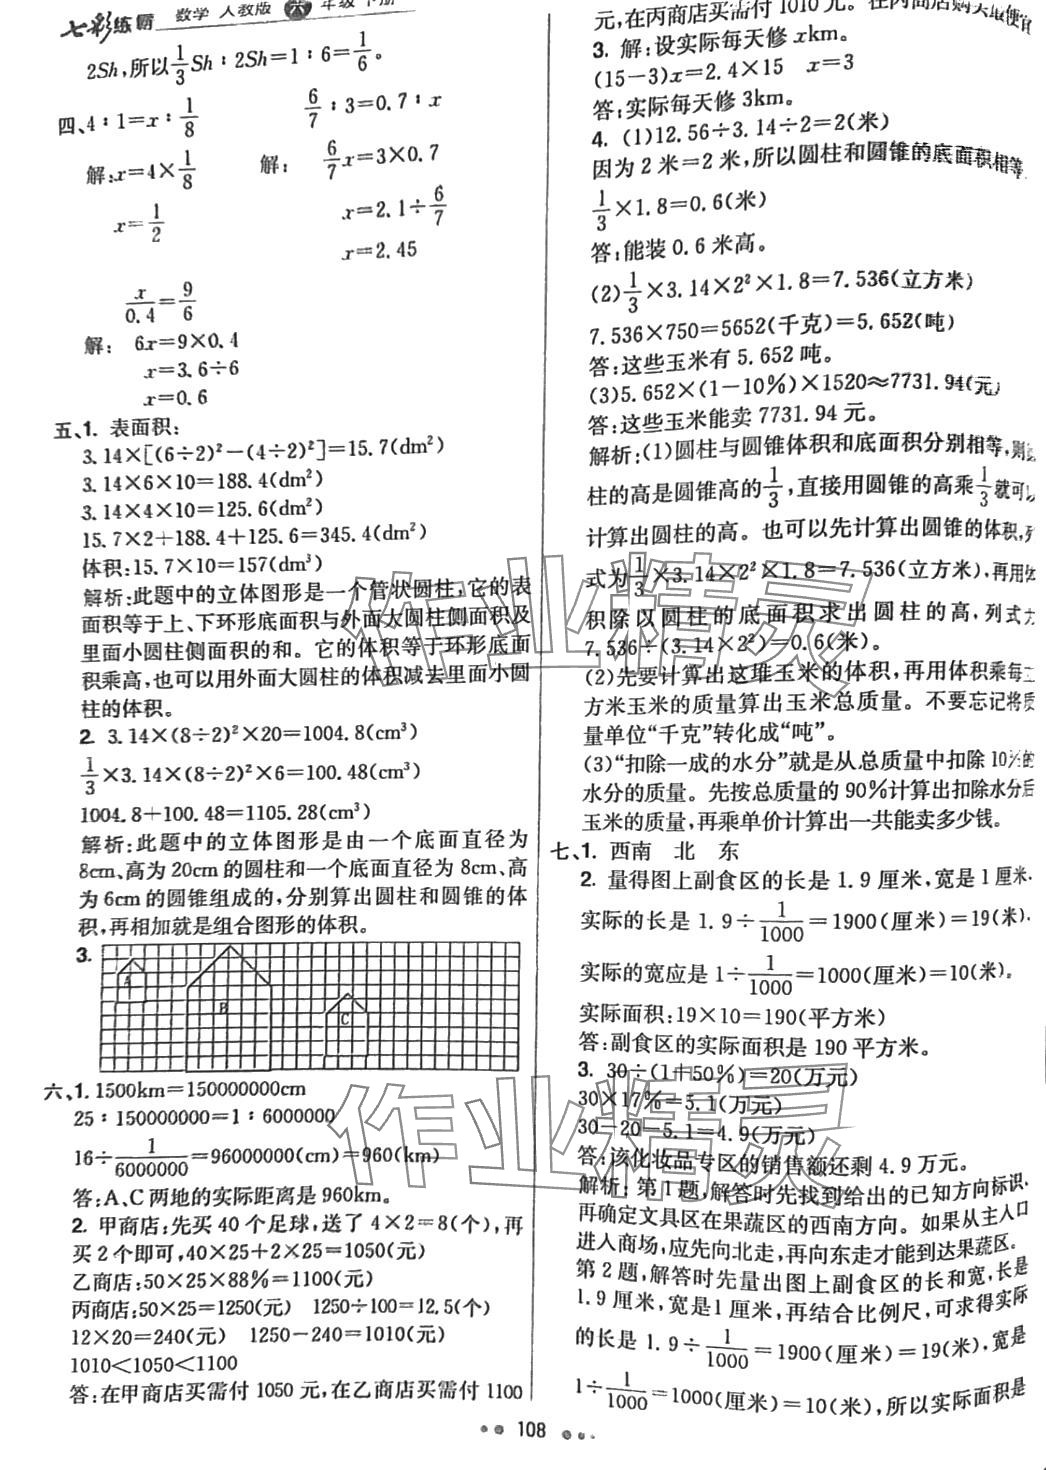 七彩练霸 数学 人教版 六 年级下册
2Sh,所以1/3Sh∶2Sh=1∶6=1/6。
四、4∶1=x∶1/8
解:x=4×1/8
x=1/2
6/7∶3=0.7∶x
解: 6/7x=3×0.7
x=2.1÷6/7
x=2.45
x/0.4=9/6
解: 6x=9×0.4
x=3.6÷6
x=0.6
五、1. 表面积:
3.14×[(6÷2)²-(4÷2)²]=15.7(dm²)
3.14×6×10=188.4(dm²)
3.14×4×10=125.6(dm²)
15.7×2+188.4+125.6=345.4(dm²)
体积:15.7×10=157(dm³)
解析:此题中的立体图形是一个管状圆柱,它的表
面积等于上、下环形底面积与外面大圆柱侧面积及
里面小圆柱侧面积的和。它的体积等于环形底面
积乘高,也可以用外面大圆柱的体积减去里面小圆
柱的体积。
2. 3.14×(8÷2)²×20=1004.8(cm³)
1/3×3.14×(8÷2)²×6=100.48(cm³)
1004.8+100.48=1105.28(cm³)
解析:此题中的立体图形是由一个底面直径为
8cm、高为20cm的圆柱和一个底面直径为8cm、高
为6cm的圆锥组成的,分别算出圆柱和圆锥的体
积,再相加就是组合图形的体积。
3.
A
B
C
六、1. 1500km=150000000cm
25∶150000000=1∶6000000
16÷1/6000000=96000000(cm)=960(km)
答:A、C两地的实际距离是960km。
2. 甲商店:先买40个足球,送了4×2=8(个),再
买2个即可,40×25+2×25=1050(元)
乙商店:50×25×88%=1100(元)
丙商店:50×25=1250(元) 1250÷100=12.5(个)
12×20=240(元) 1250-240=1010(元)
1010<1050<1100
答:在甲商店买需付1050元,在乙商店买需付1100
元,在丙商店买需付1010元。在丙商店购买最便宜
3. 解:设实际每天修xkm。
(15-3)x=2.4×15 x=3
答:实际每天修3km。
4. (1)12.56÷3.14÷2=2(米)
因为2米=2米,所以圆柱和圆锥的底面积相等,
1/3×1.8=0.6(米)
答:能装0.6米高。
(2)1/3×3.14×2²×1.8=7.536(立方米)
7.536×750=5652(千克)=5.652(吨)
答:这些玉米有5.652吨。
(3)5.652×(1-10%)×1520≈7731.94(元)
答:这些玉米能卖7731.94元。
解析:(1)圆柱与圆锥体积和底面积分别相等,则
柱的高是圆锥高的1/3,直接用圆锥的高乘1/3就可以
计算出圆柱的高。也可以先计算出圆锥的体积,列
式为1/3×3.14×2²×1.8=7.536(立方米),再用体
积除以圆柱的底面积求出圆柱的高,列式为
7.536÷(3.14×2²)=0.6(米)。
(2)先要计算出这堆玉米的体积,再用体积乘每立
方米玉米的质量算出玉米总质量。不要忘记将质
量单位“千克”转化成“吨”。
(3)“扣除一成的水分”就是从总质量中扣除10%的
水分的质量。先按总质量的90%计算出扣除水分后
玉米的质量,再乘单价计算出一共能卖多少钱。
七、1. 西南 北 东
2. 量得图上副食区的长是1.9厘米,宽是1厘米.
实际的长是1.9÷1/1000=1900(厘米)=19(米).
实际的宽应是1÷1/1000=1000(厘米)=10(米)。
实际面积:19×10=190(平方米)
答:副食区的实际面积是190平方米。
3. 30÷(1+50%)=20(万元)
30×17%=5.1(万元)
30-20-5.1=4.9(万元)
答:该化妆品专区的销售额还剩4.9万元。
解析:第1题,解答时先找到给出的已知方向标识,
再确定文具区在果蔬区的西南方向。如果从主入口
进入商场,应先向北走,再向东走才能到达果蔬区。
第2题,解答时先量出图上副食区的长和宽,长是
1.9厘米,宽是1厘米,再结合比例尺,可求得实际
的长是1.9÷1/1000=1900(厘米)=19(米),宽是
1÷1/1000=1000(厘米)=10(米),所以实际面积是
108
作业精灵
作业精灵